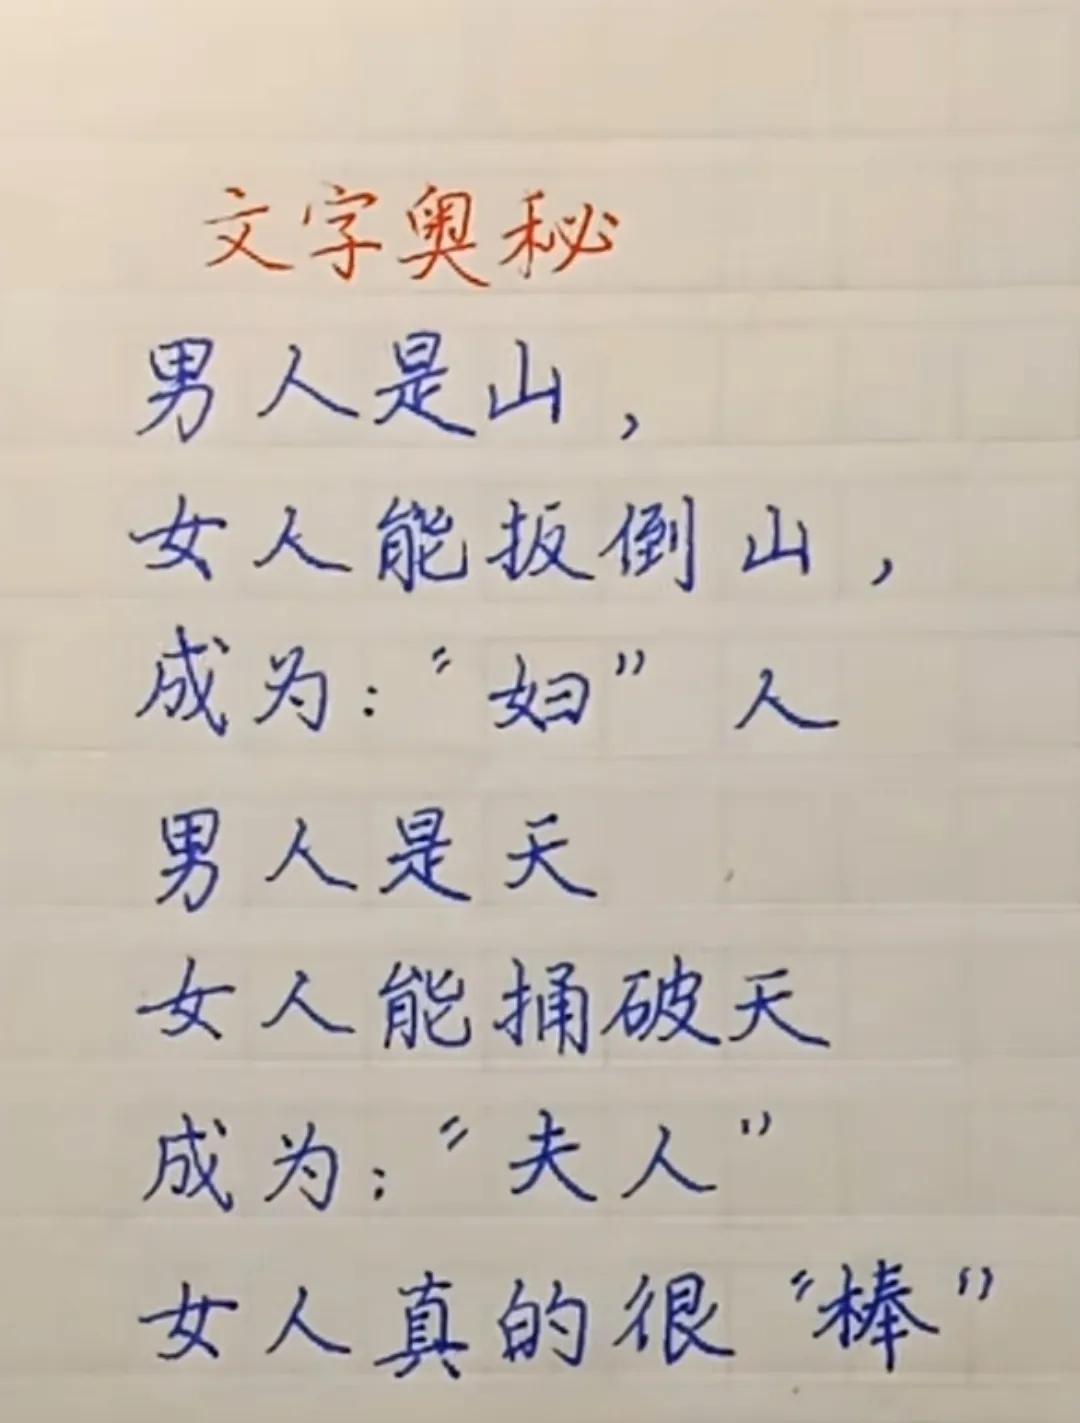 文字奥秘
男人是山，
女人能扳倒山，
成为：“妇”人
男人是天
女人能捅破天
成为：“夫人”
女人真的很“棒”